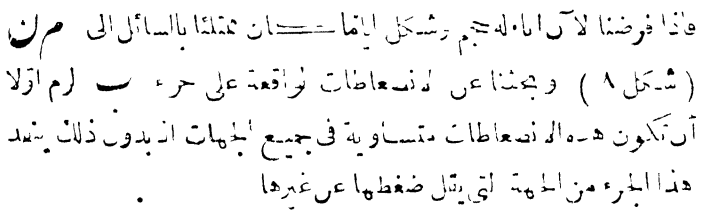 فاذا فرضنا الآن اناء له حجم وشكل اياما كان ممتلئا بالسائل الى م ن
(شكل ٨) وبحثنا عن الانضغاطات الواقعة على جزء ب لزم اولا
أن تكون هذه الانضغاطات متساوية فى جميع الجهات اذ بدون ذلك يتمدد
هذا الجزء من الجهة التى يقل ضغطها عن غيرها